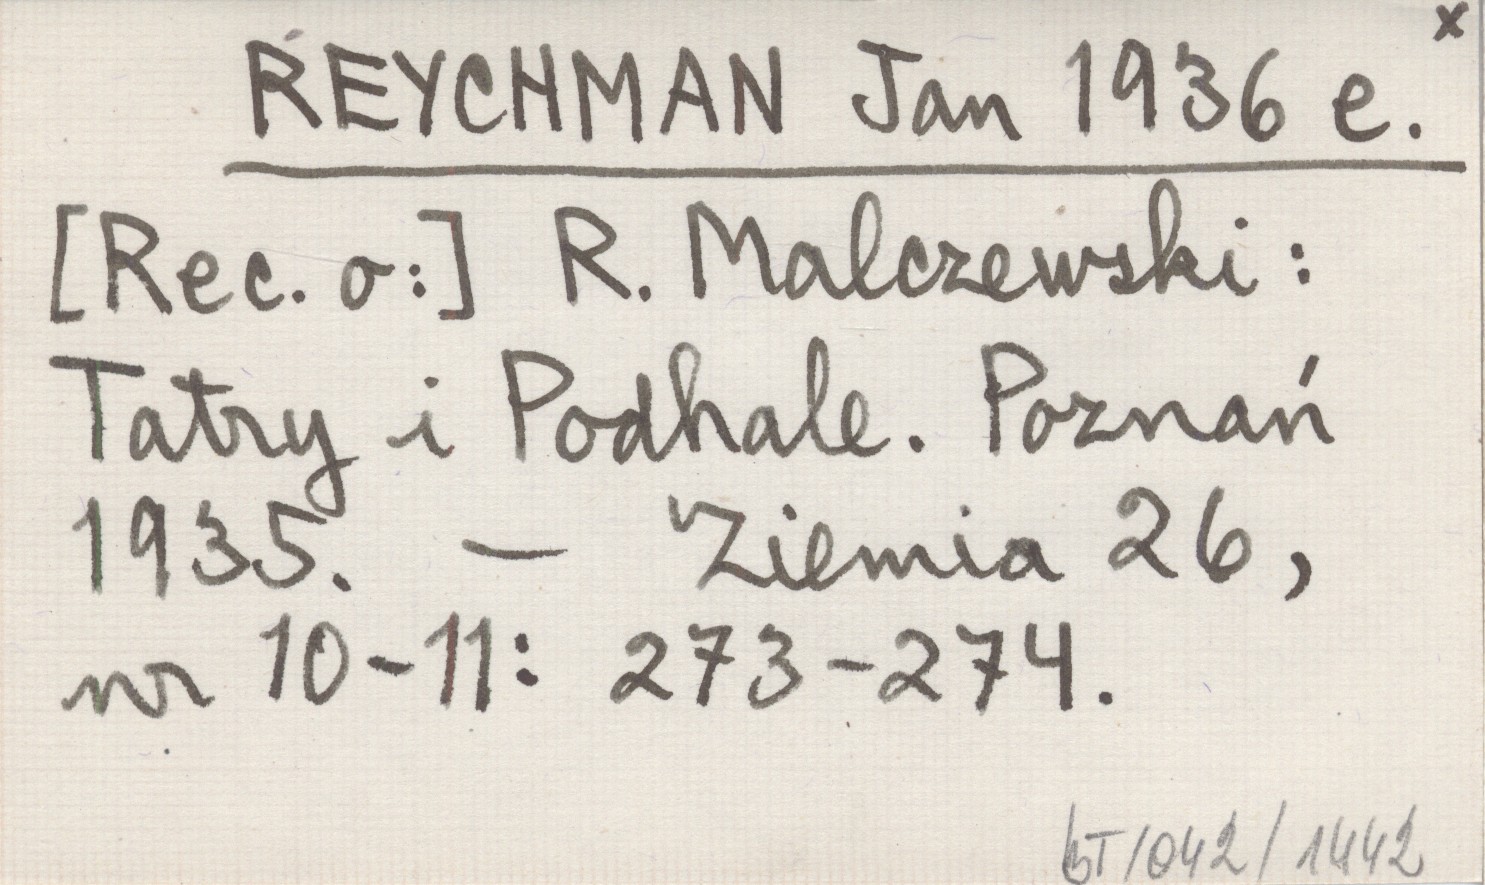 x
REYCHMAN Jan 1936 e.
[Rec. o:] R. Malczewski:
Tatry i Podhale. Poznań
1935. — Ziemia 26,
nr 10-11: 273-274.
bT/042/1442